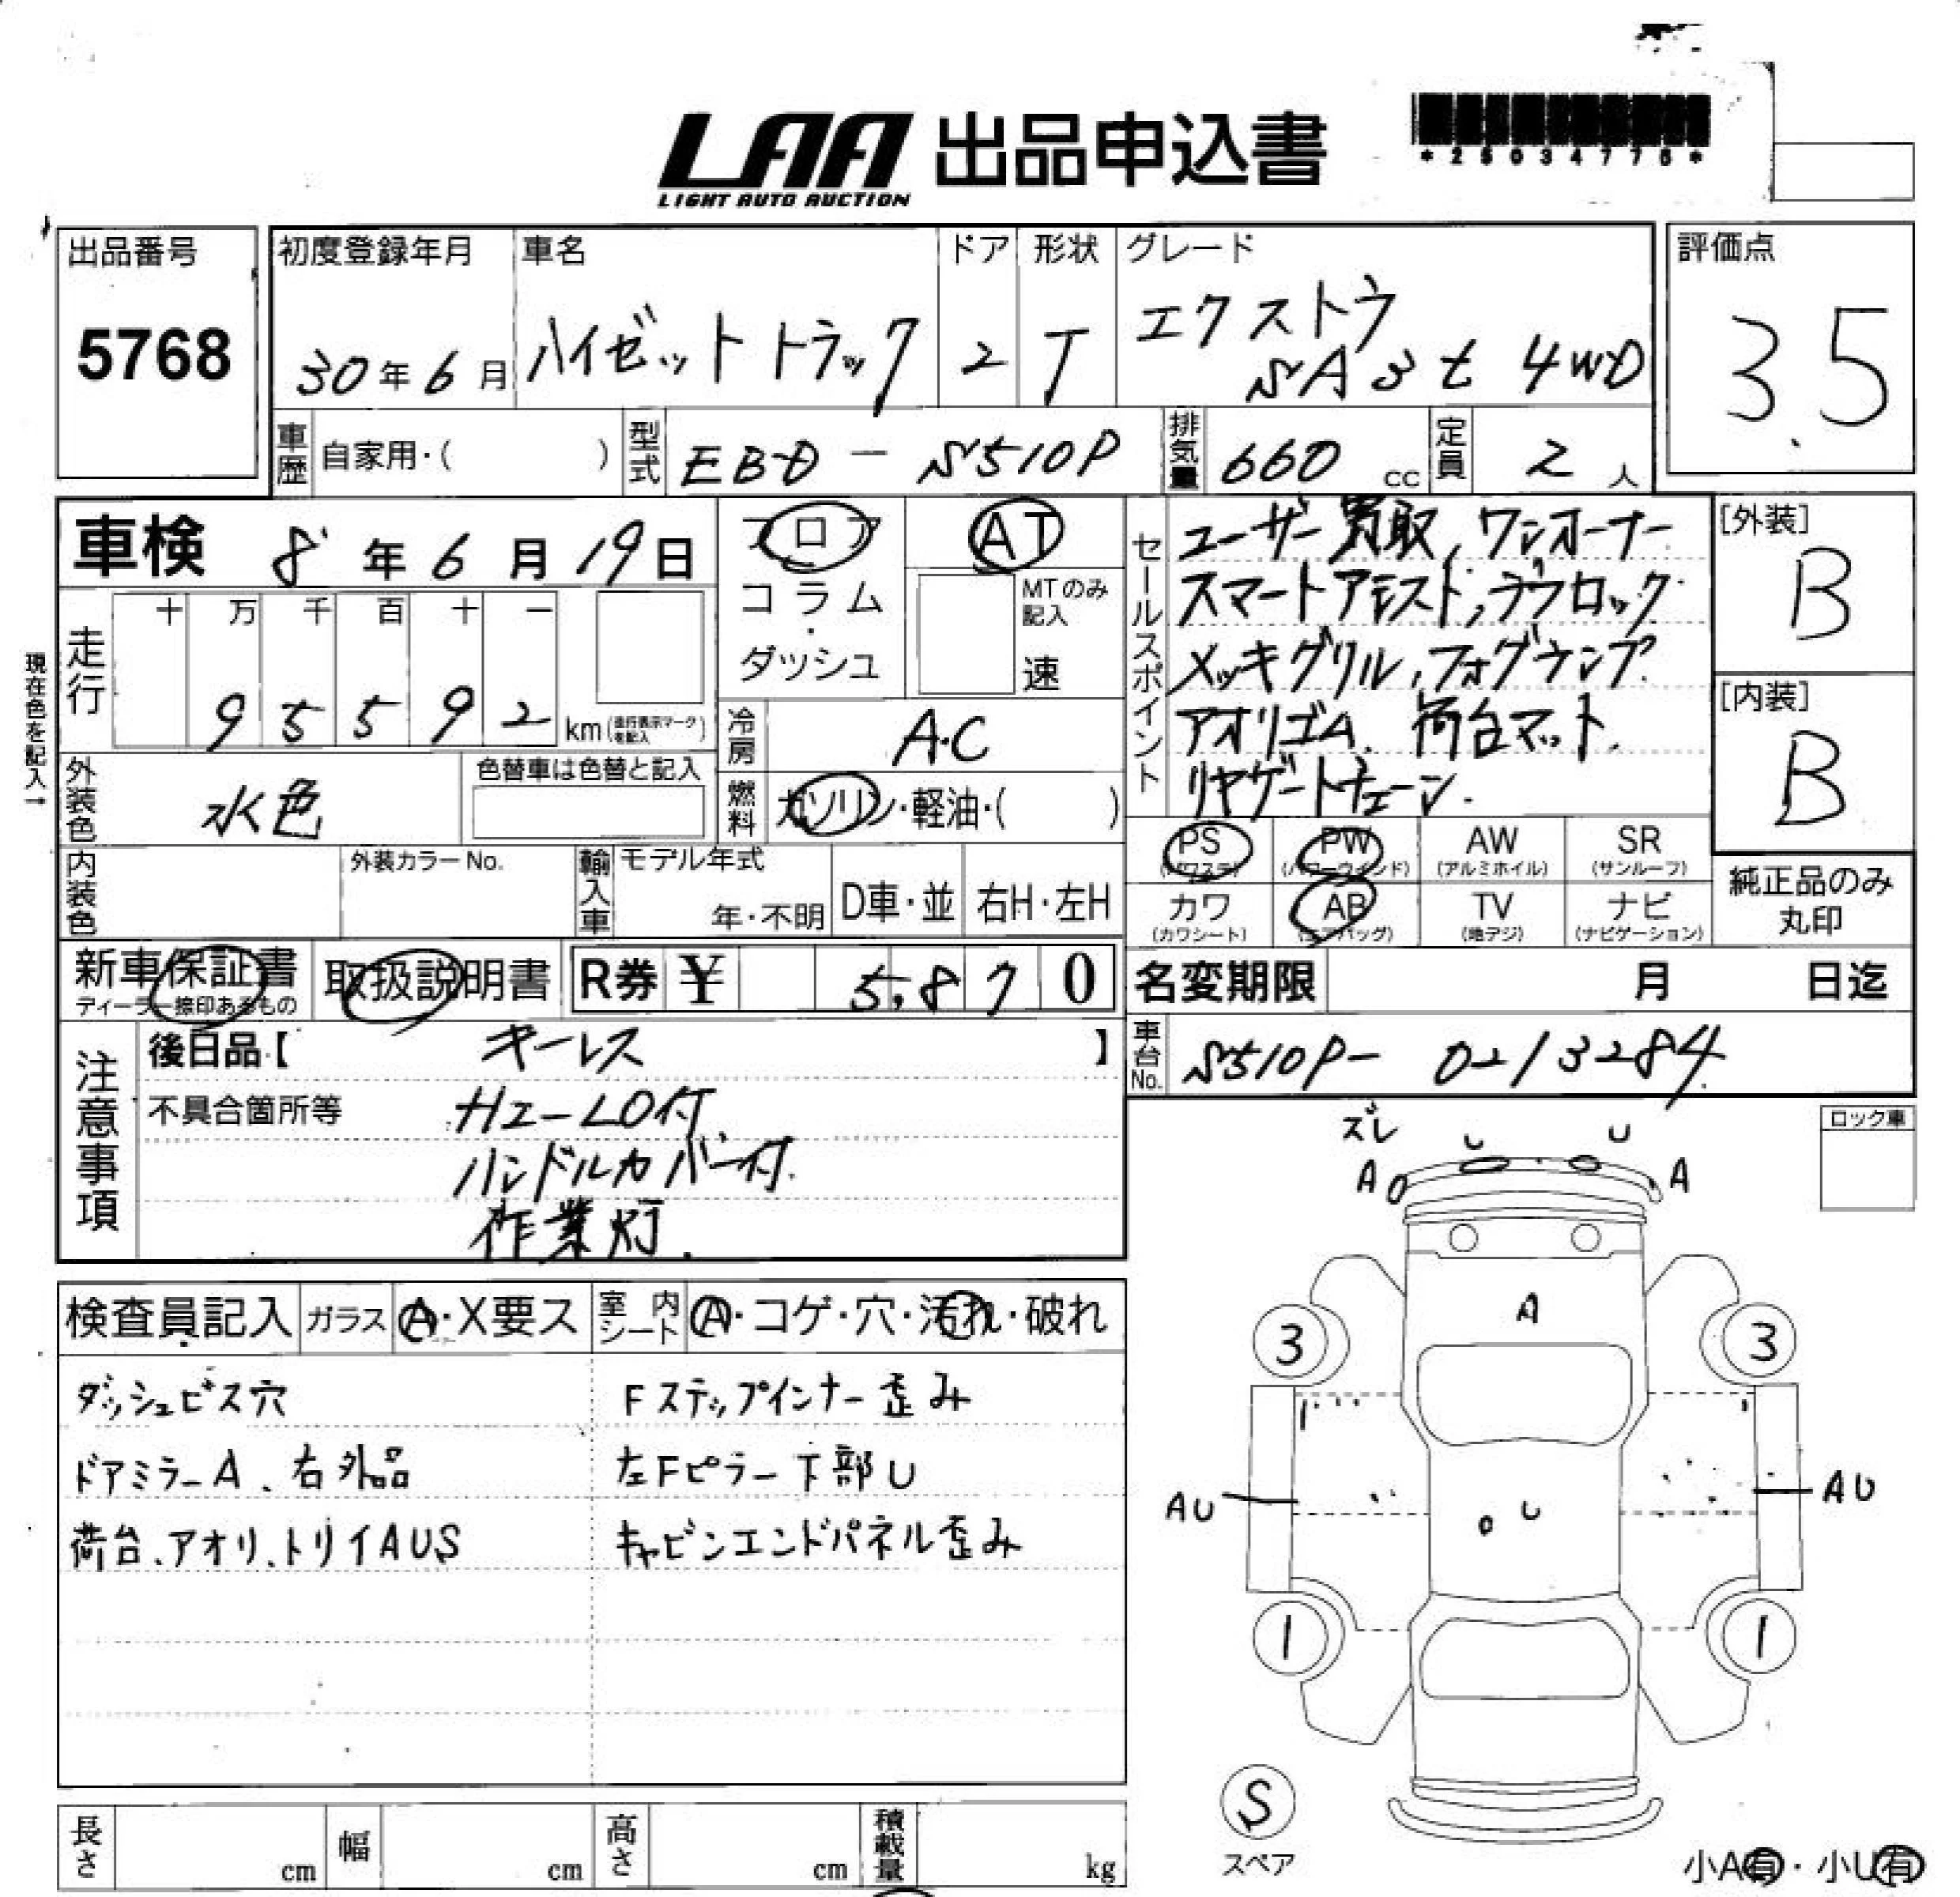 LAA 出品申込書
LIGHT AUTO AUCTION
*25034776*
出品番号
5768
初度登録年月
30年6月
車名
ハイゼットトラック
ドア
2
形状
T
グレード
エクストラ
SA3t 4WD
評価点
3.5
車歴 自家用・( )
型式 EBD-S510P
排気量 660 cc
定員 2 人
車検 8年6月19日
フロア
コラム
・
ダッシュ
AT
MTのみ
記入
速
セールスポイント
ユーザー買取, ワンオーナー
スマートアシスト, デフロック
メッキグリル, フォグランプ
アオリゴム, 荷台マット
リヤゲートチェーン
[外装]
B
[内装]
B
現在色を記入→
走行
十 万 千 百 十 一
9 5 5 9 2 km(走行表示マークを記入)
冷房 A・C
燃料 ガソリン・軽油・( )
外装色 水色
色替車は色替と記入
内装色
外装カラーNo.
輸入車
モデル年式
年・不明
D車・並
右H・左H
PS
(パワステ)
PW
(パワーウインド)
AW
(アルミホイル)
SR
(サンルーフ)
カワ
(カワシート)
AB
(エアバッグ)
TV
(地デジ)
ナビ
(ナビゲーション)
純正品のみ
丸印
新車保証書
ディーラー捺印あるもの
取扱説明書
R券 ¥ 5,870
名変期限 月 日迄
車台No. S510P-0213284
注意事項
後日品【 キーレス 】
不具合箇所等
ハンドルカバー付.
作業灯.
ロック車
検査員記入
ガラス A・X要ス
室内シート A・コゲ・穴・汚れ・破れ
ダッシュビス穴
ドアミラーA、右外品
荷台、アオリ、トリイAUS
Fステップインナー歪み
左Fピラー下部U
キャビンエンドパネル歪み
ズレ U U
A A
A
3 3
AU U AU
1 1
S
スペア
小A有・小U有
長さ cm
幅 cm
高さ cm
積載量 kg